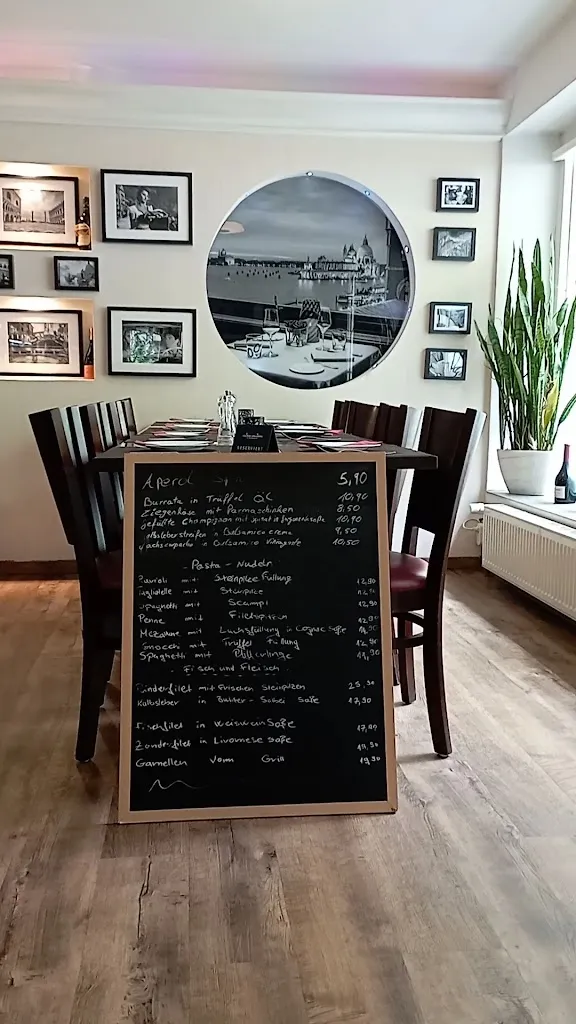 Aperol 5,90
Burrata in Trüffel Öl 10,90
Ziegenkäse mit Parmaschinken 8,50
gefüllte Champignon mit Spinat in 10,90
in Balsamico creme 9,50
in Balsamico Vinaigrette 10,50
- Pasta - Nudeln
Ravioli mit Steinpilze Füllung 12,90
mit Steinpilze
Spaghetti mit Scampi 12,90
Penne mit Filetspitzen
Mezzalune mit Lachsfüllung in Cognac Soße
mit Trüffel Füllung 12,90
Spaghetti mit Pfifferlinge 11,90
Fisch und Fleisch
Rinderfilet mit Frischen Steinpilzen 25,90
Kalbsleber in Butter - Salbei Soße 17,90
Fischfilet in Weiswein Soße
Zanderfilet in Livornese Soße
Garnellen Vom Grill 19,90
RESERVIERT